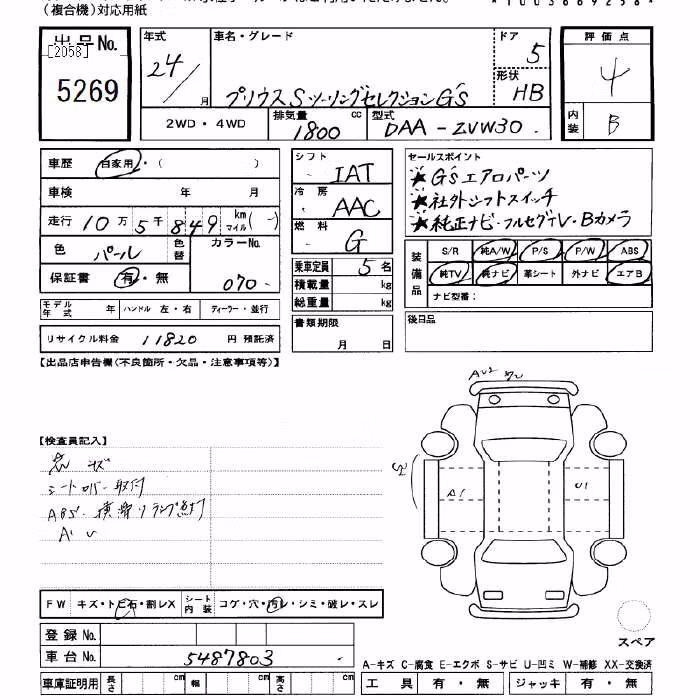 (複合機)対応用紙
出品No.
[2058]
5269
年式
24/ 月
車名・グレード
プリウスSツーリングセレクションG's
ドア 5
形状 HB
評価点
4
内装 B
2WD・4WD
排気量 1800 cc
型式 DAA-ZVW30
車歴 自家用・( )
車検 年 月
走行 10万5千849 km マイル (-)
色 パール 色替 カラーNo. 070
保証書 有・無
モデル年式 年 ハンドル 左・右 ディーラー・並行
リサイクル料金 11820 円 預託済
シフト IAT
冷房 AAC
燃料 G
乗車定員 5名
積載量 kg
総重量 kg
書類期限
月 日
セールスポイント
★G'sエアロパーツ
★社外シフトスイッチ
★純正ナビ・フルセグTV・Bカメラ
装備品
S/R 純A/W P/S P/W ABS
純TV 純ナビ 革シート 外ナビ エアB
ナビ型番:
後日品
【出品店申告欄(不良箇所・欠品・注意事項等)】
【検査員記入】
シートカバー取付
A1
U1
FW キズ・トビ石・割レX
シート内装 コゲ・穴・汚レ・シミ・破レ・スレ
登録No.
車台No. 5487803
車庫証明用 長さ cm 幅 cm 高さ cm
スペア
A-キズ C-腐食 E-エクボ S-サビ U-凹ミ W-補修 XX-交換済
工具 有・無 ジャッキ 有・無